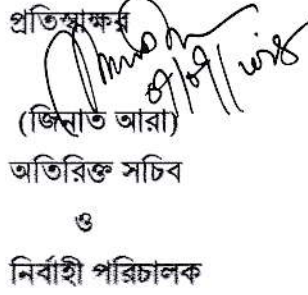 প্রতিস্বাক্ষর
(জিনাত আরা)
অতিরিক্ত সচিব
ও
নির্বাহী পরিচালক